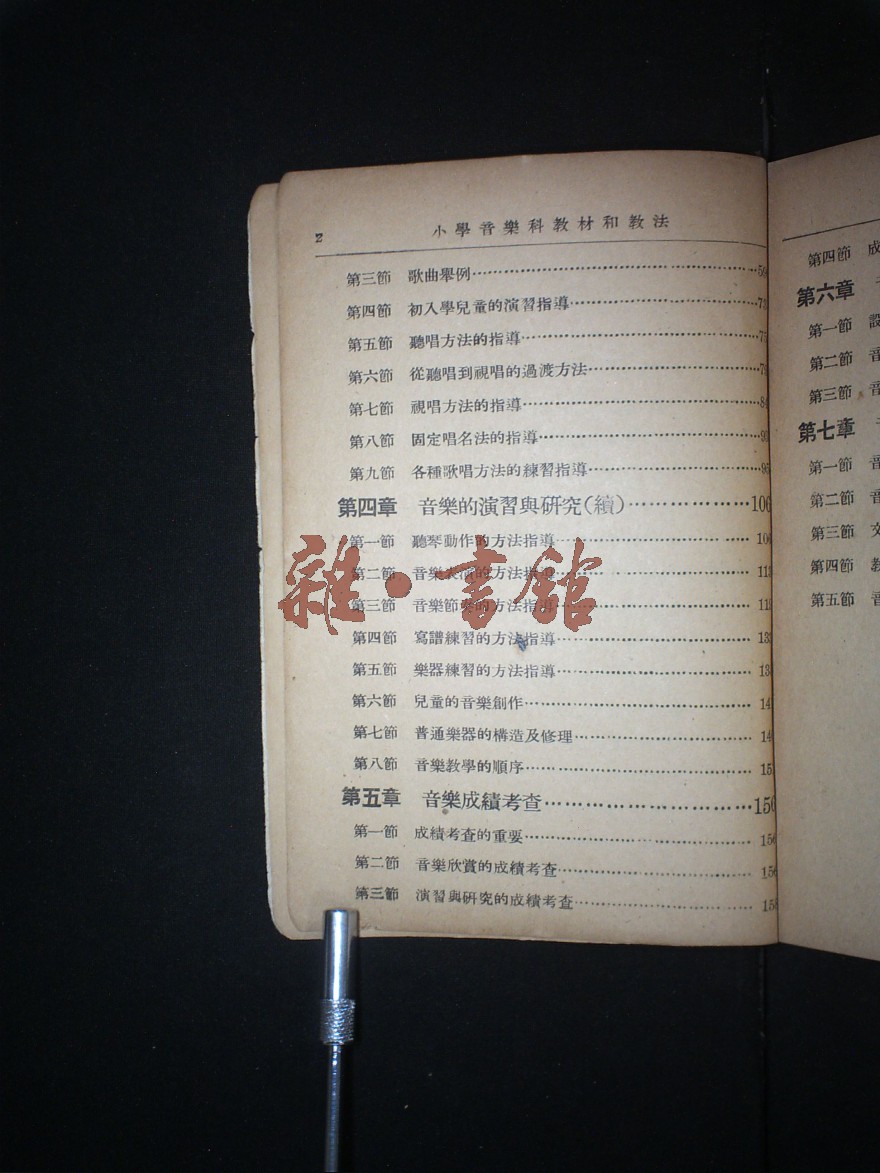 2 小學音樂科教材和教法
第三節 歌曲舉例
第四節 初入學兒童的演習指導
第五節 聽唱方法的指導
第六節 從聽唱到視唱的過渡方法
第七節 視唱方法的指導
第八節 固定唱名法的指導
第九節 各種歌唱方法的練習指導
第四章 音樂的演習與研究(續) 106
第一節 聽琴動作的方法指導
第二節 音樂表演的方法指導
第三節 音樂節奏的方法指導
第四節 寫譜練習的方法指導
第五節 樂器練習的方法指導
第六節 兒童的音樂創作
第七節 普通樂器的構造及修理
第八節 音樂教學的順序
第五章 音樂成績考查 156
第一節 成績考查的重要 156
第二節 音樂欣賞的成績考查 156
第三節 演習與研究的成績考查 158
雜·書館
第四節 成
第六章
第一節 設
第二節 音
第三節 音
第七章
第一節 音
第二節 音
第三節 文
第四節 教
第五節 音